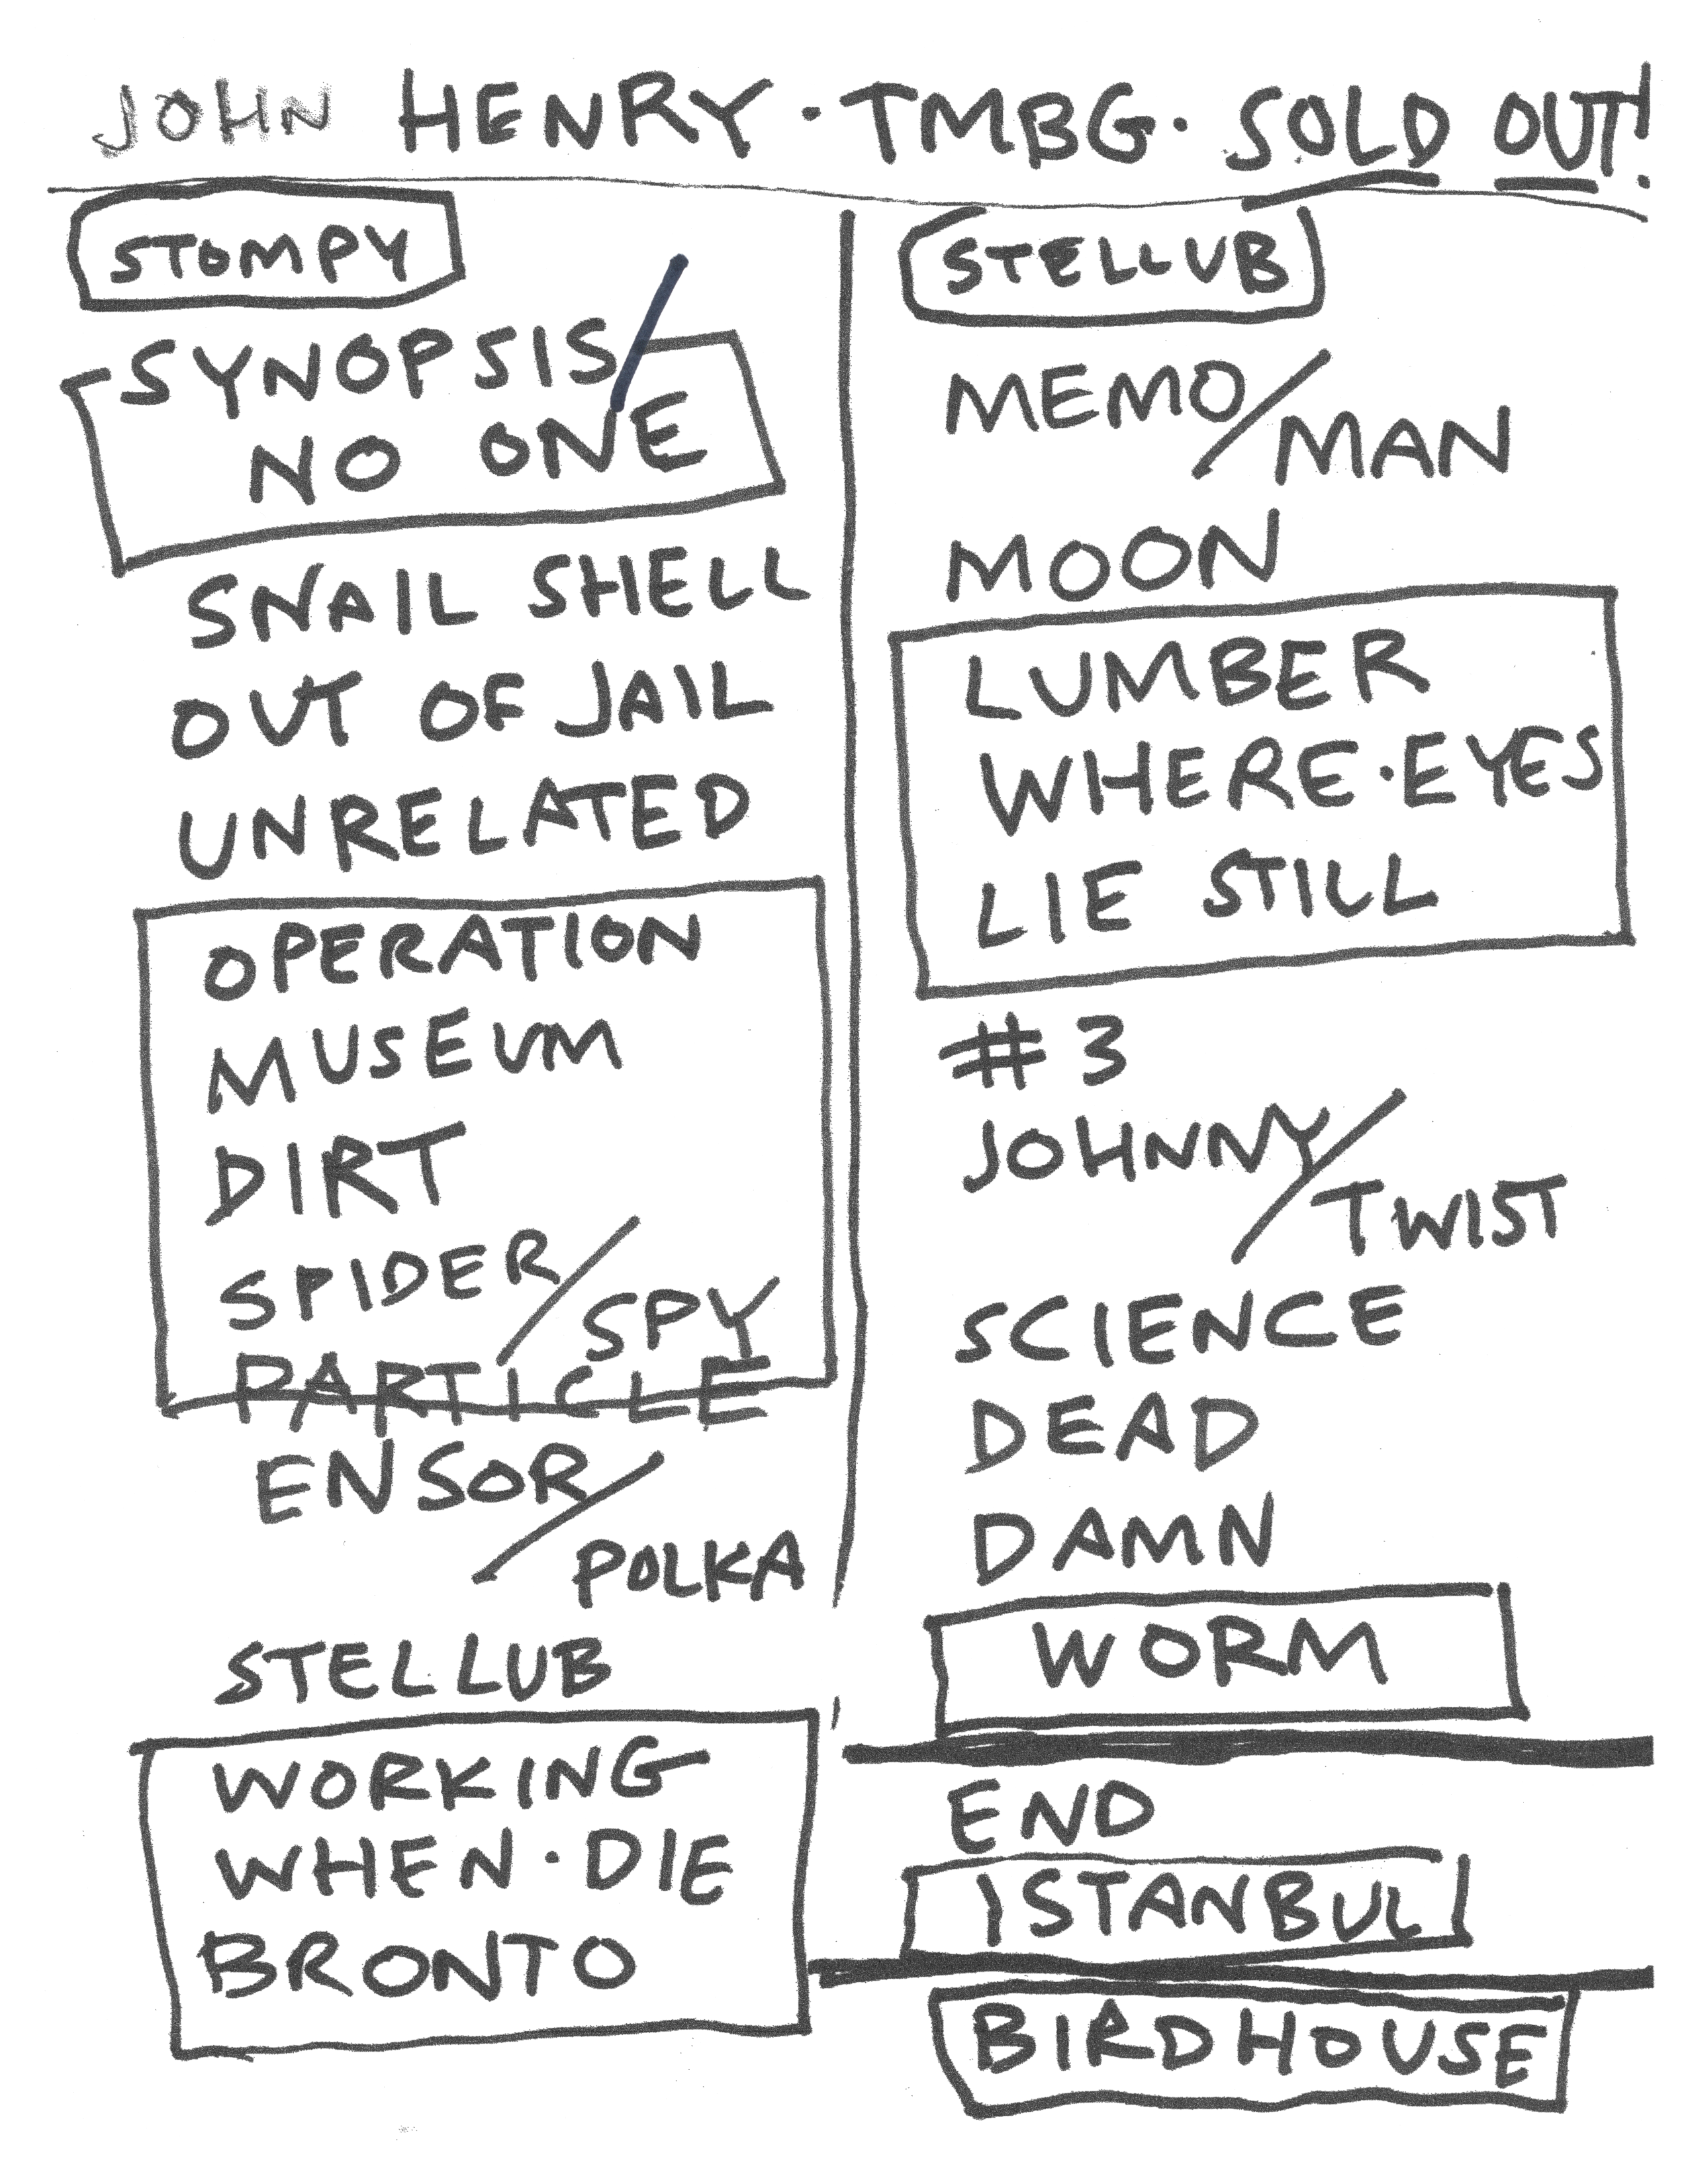 JOHN HENRY · TMBG · SOLD OUT!
STOMPY
SYNOPSIS/
NO ONE
SNAIL SHELL
OUT OF JAIL
UNRELATED
OPERATION
MUSEUM
DIRT
SPIDER/
SPY
PARTICLE
ENSOR/
POLKA
STELLUB
WORKING
WHEN · DIE
BRONTO
STELLUB
MEMO/
MAN
MOON
LUMBER
WHERE · EYES
LIE STILL
#3
JOHNNY/
TWIST
SCIENCE
DEAD
DAMN
WORM
END
ISTANBUL
BIRDHOUSE